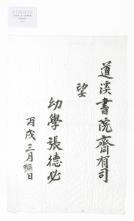 道溪書院齋有司
望
幼學張德必
丙戌三月
日